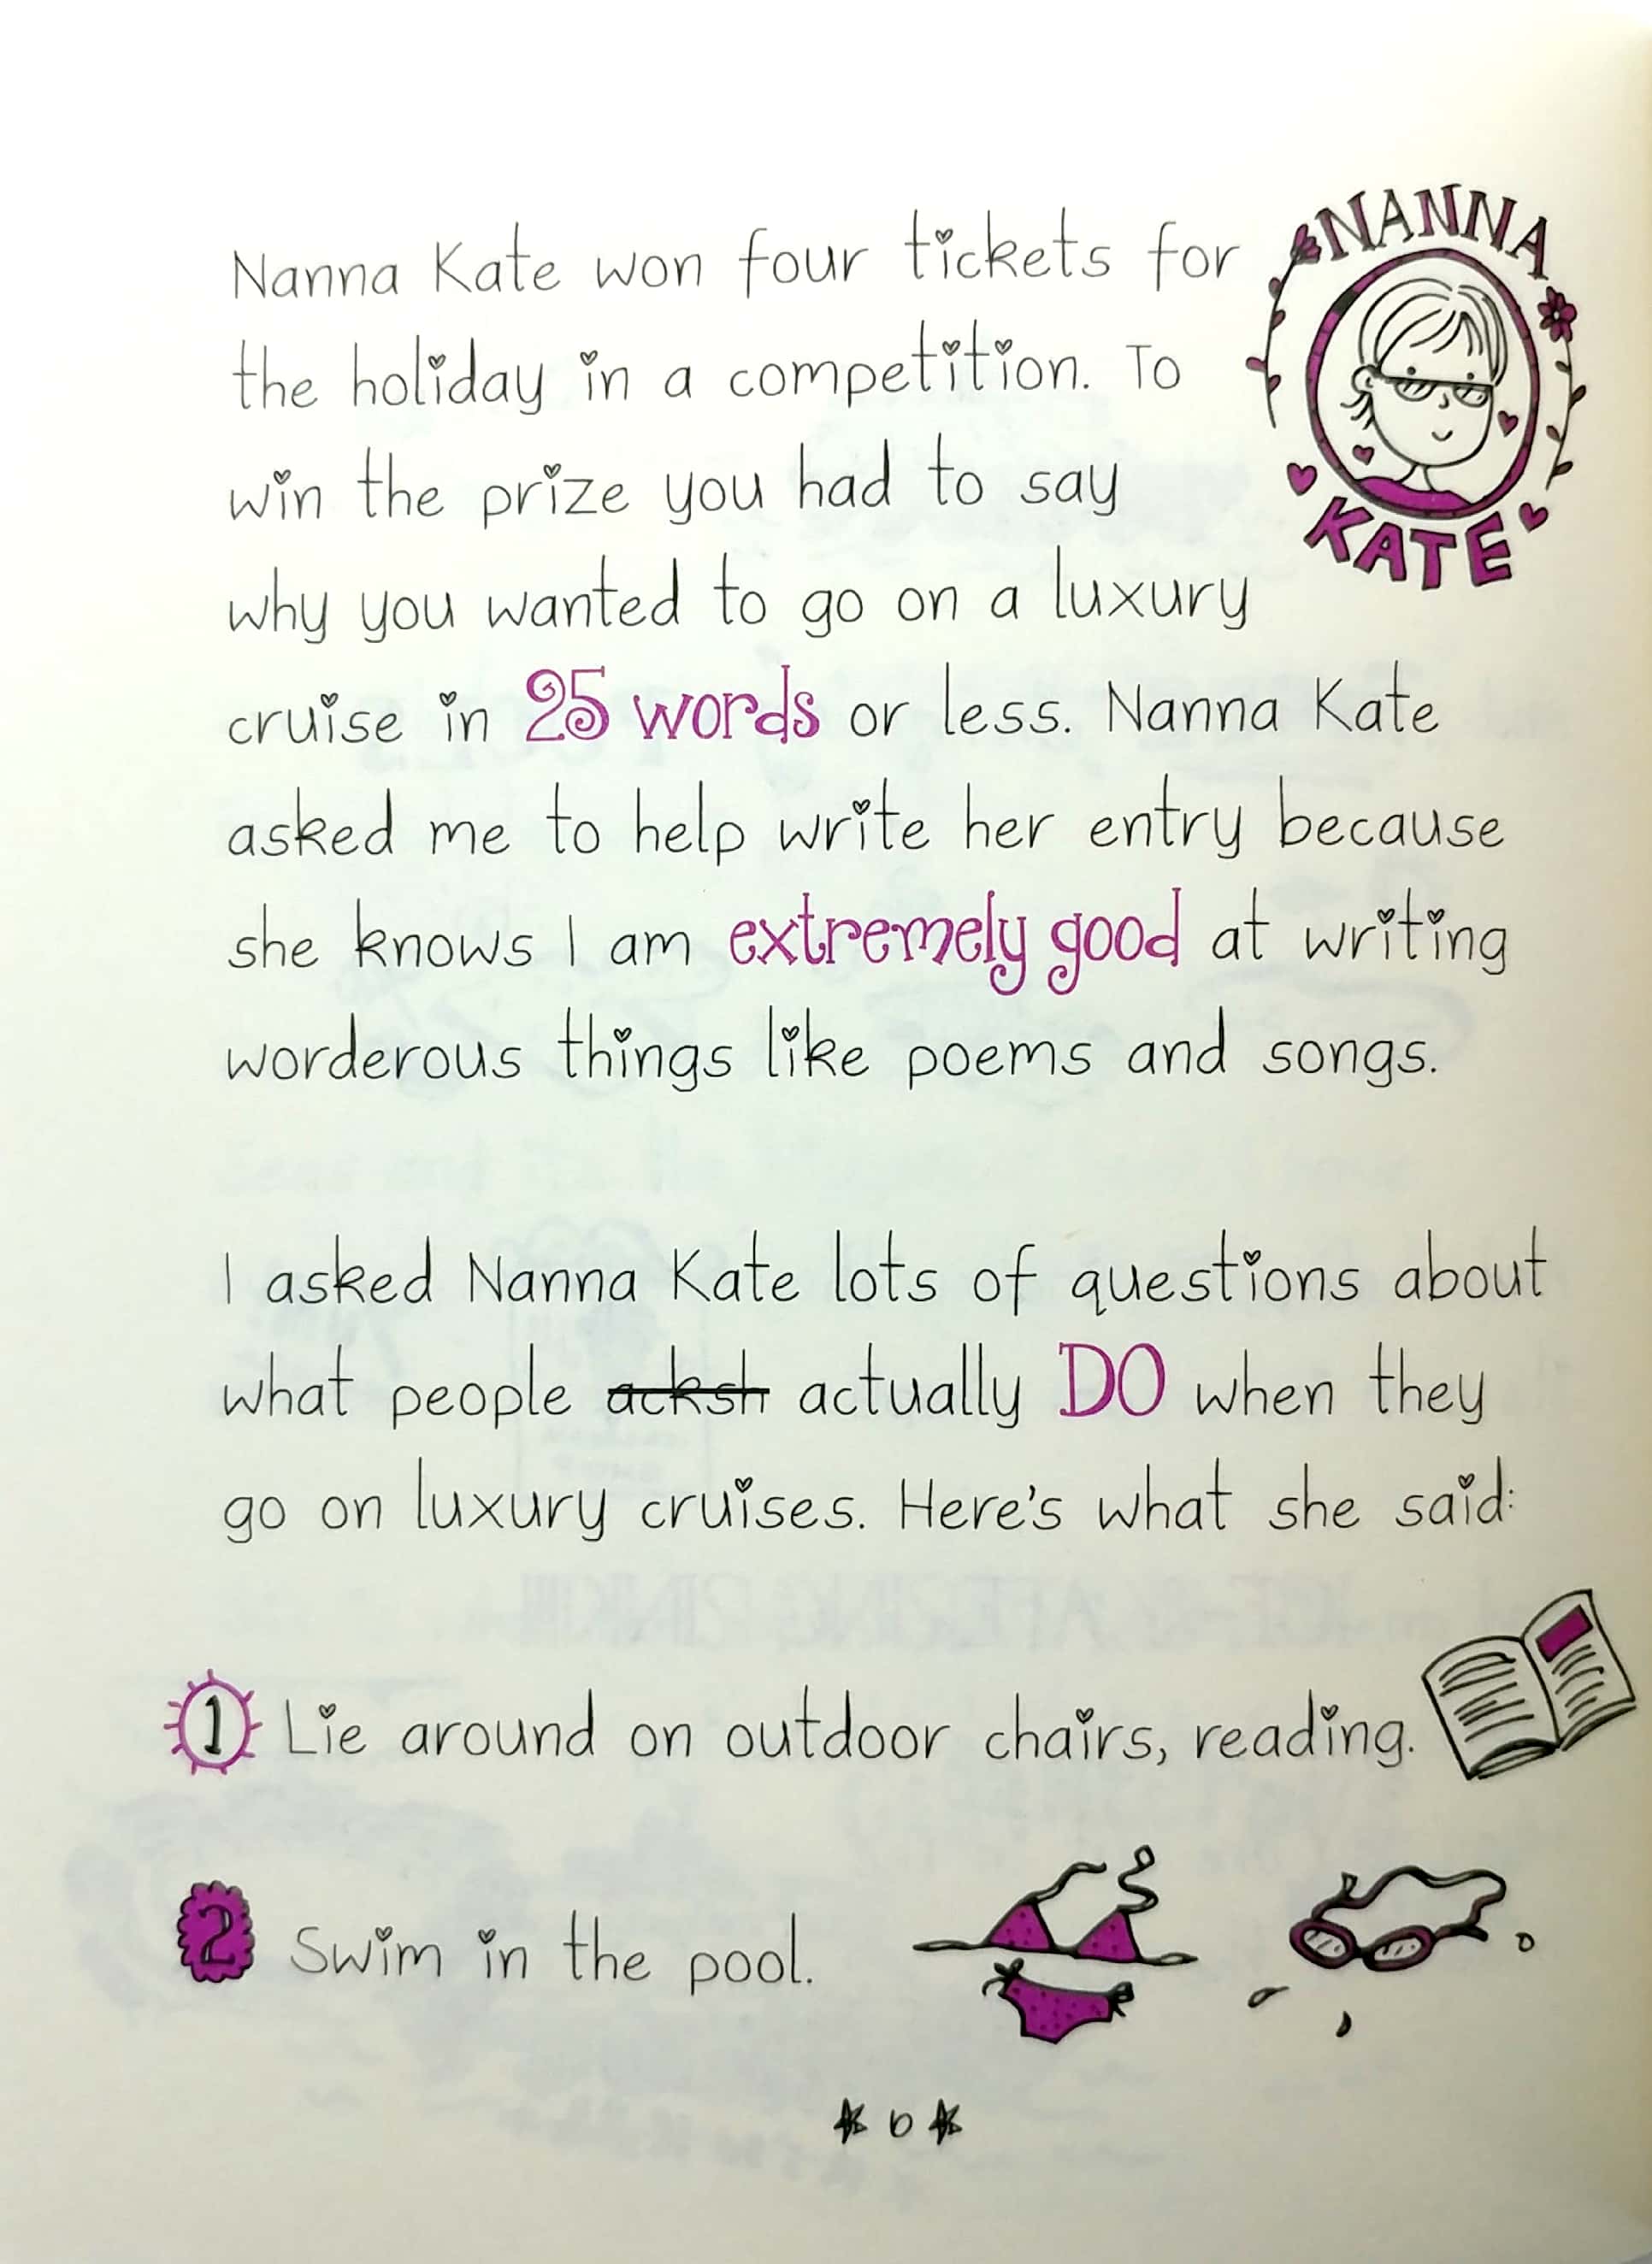 NANNA
KATE
Nanna Kate won four tickets for
the holiday in a competition. To
win the prize you had to say
why you wanted to go on a luxury
cruise in 25 words or less. Nanna Kate
asked me to help write her entry because
she knows I am extremely good at writing
worderous things like poems and songs.
I asked Nanna Kate lots of questions about
what people acksh actually DO when they
go on luxury cruises. Here's what she said:
1 Lie around on outdoor chairs, reading.
2 Swim in the pool.
6